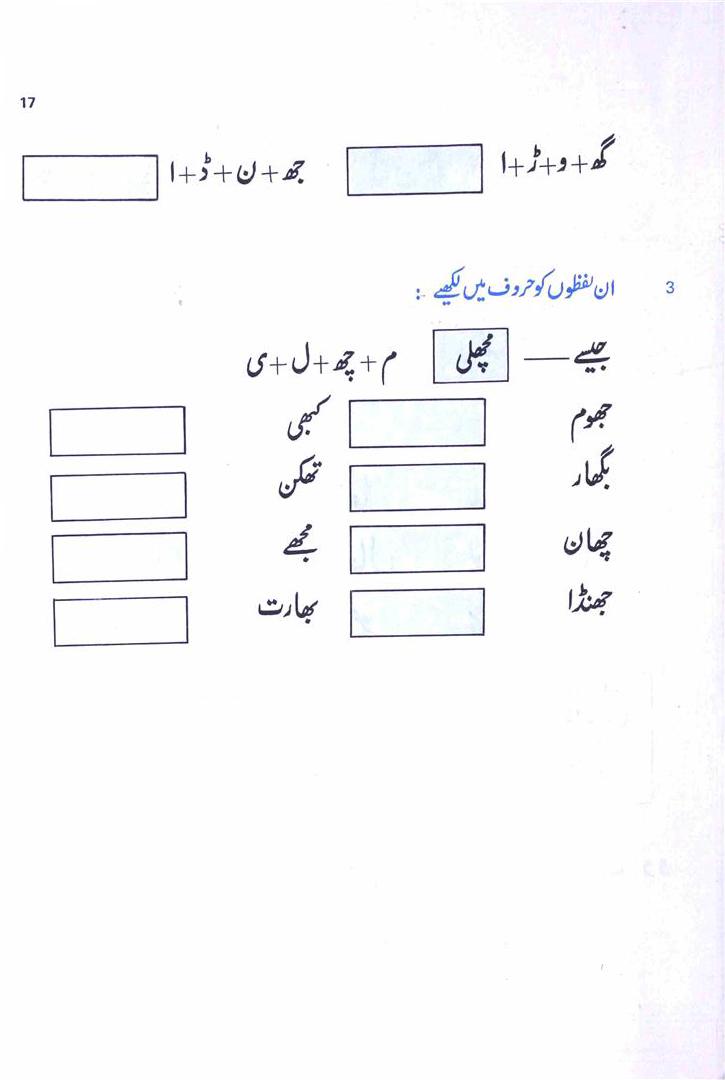 17
گھ+و+ڑ+ا جھ+ن+ڈ+ا
3 ان لفظوں کو حروف میں لکھیے :
جیسے —— مچھلی م+چھ+ل+ی
جھوم کبھی
بگھار تھکن
چھان مجھے
جھنڈا بھارت